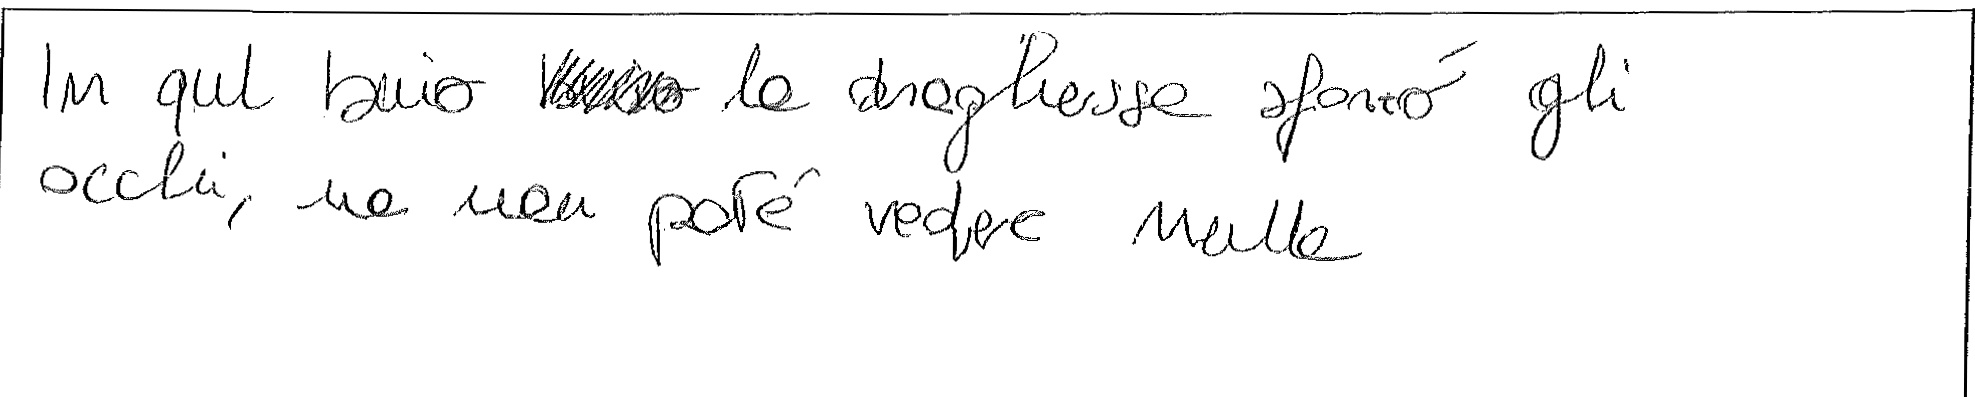 In quel buio la draghessa sforzò gli
occhi, ma non poté vedere nulla